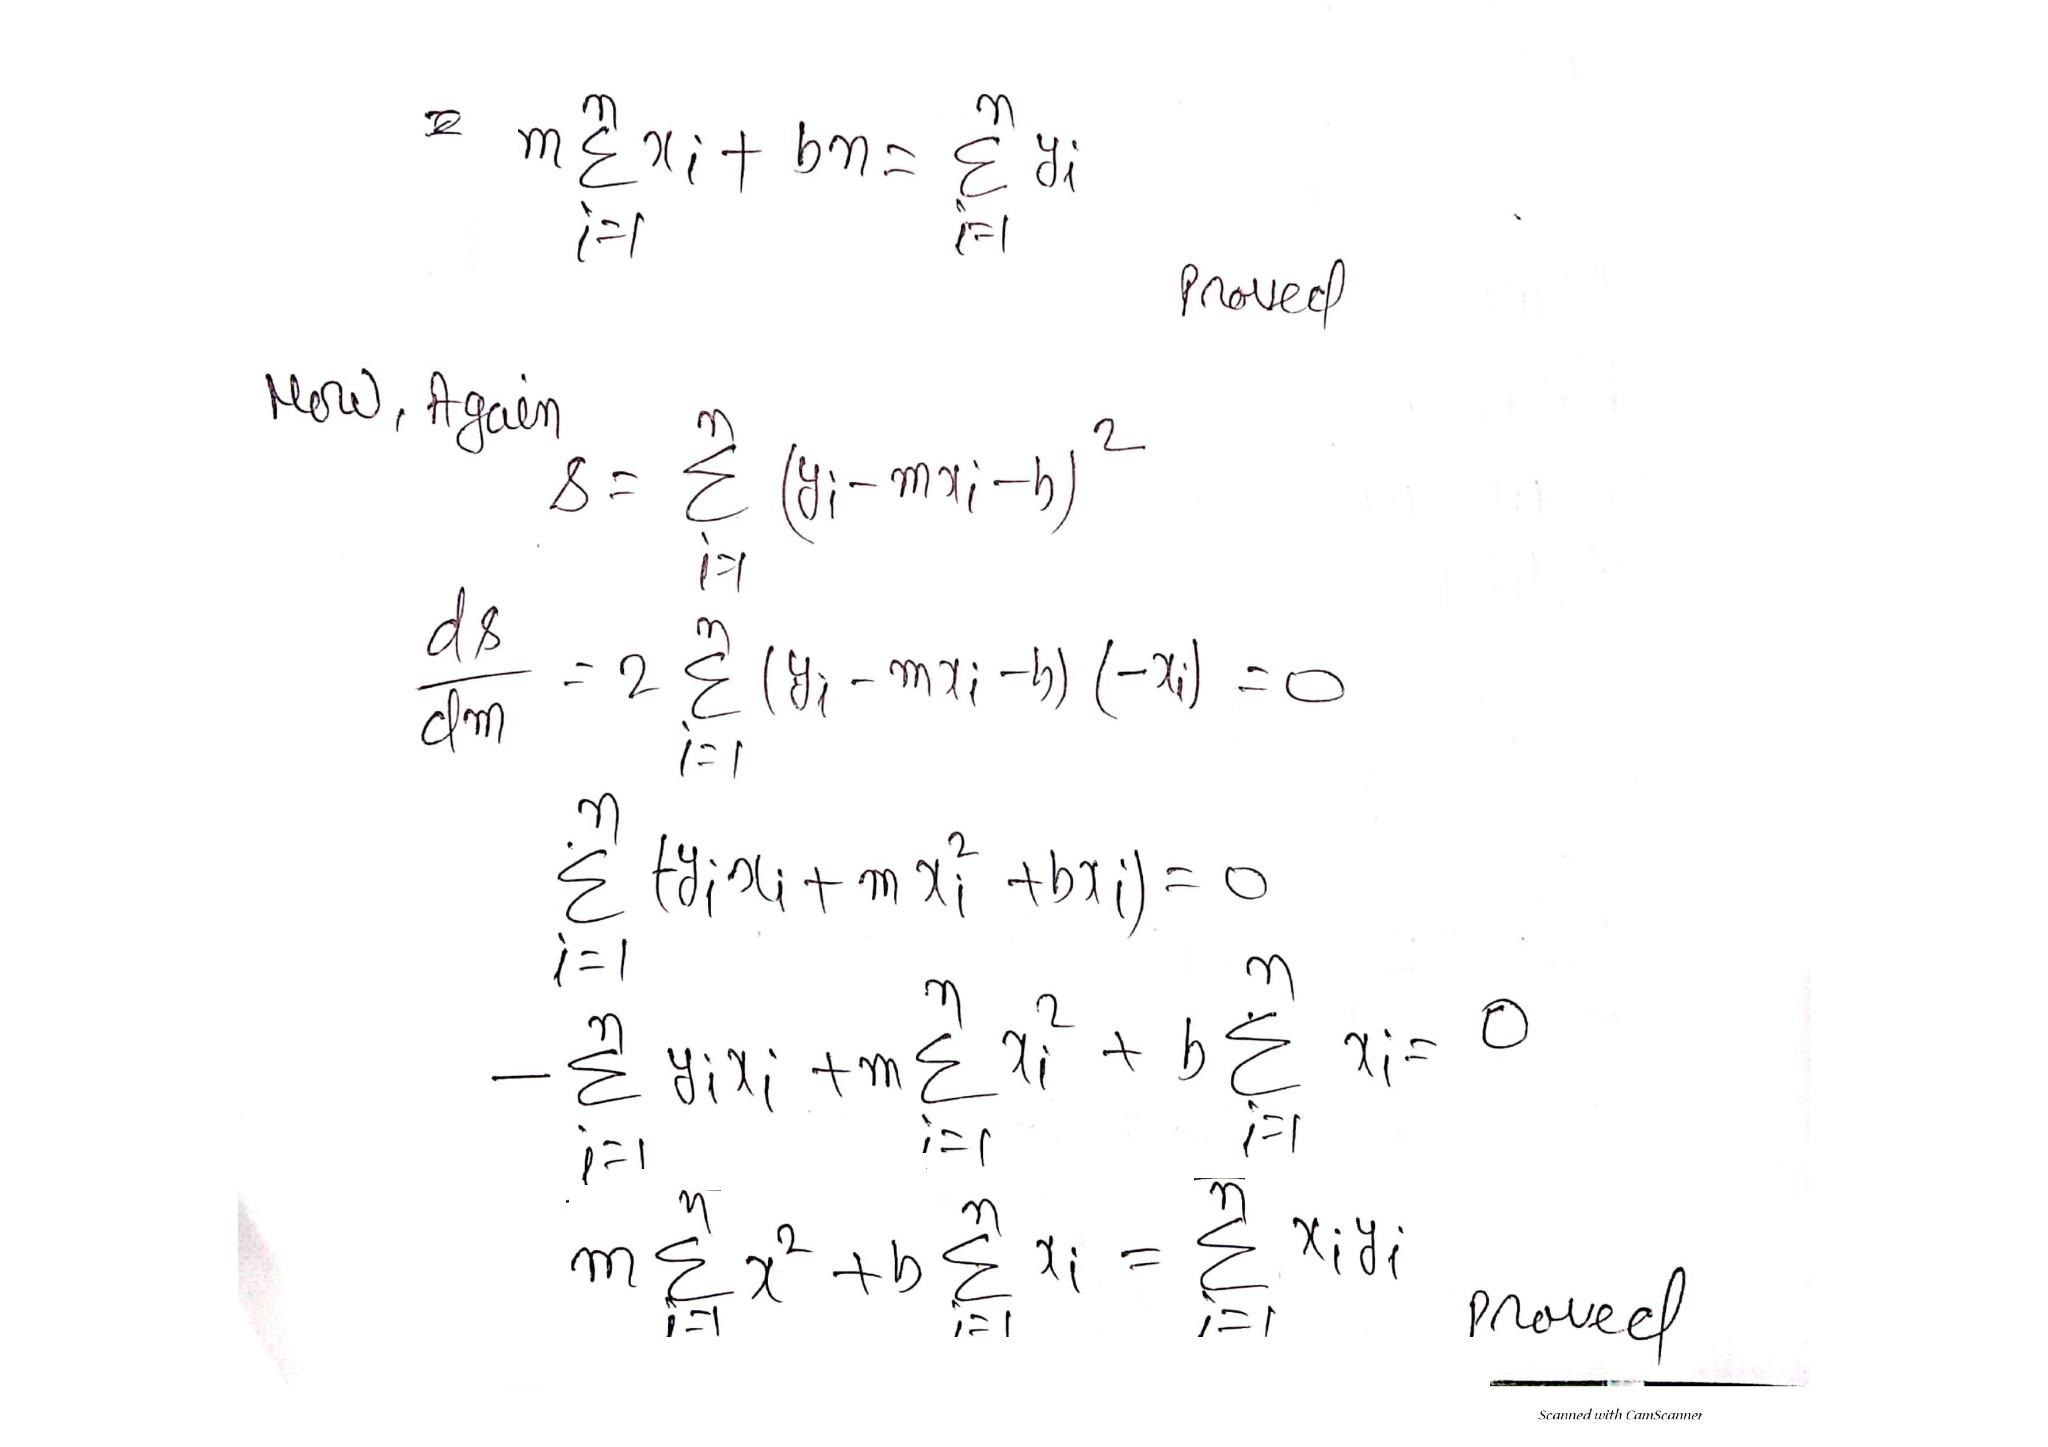 = m∑_{i=1}^{n} xi + bn = ∑_{i=1}^{n} yi
Proved
Now, Again
S = ∑_{i=1}^{n} (yi - mxi - b)^2
ds/dm = 2 ∑_{i=1}^{n} (yi - mxi - b) (-xi) = 0
∑_{i=1}^{n} (-yixi + mxi^2 + bxi) = 0
- ∑_{i=1}^{n} yixi + m∑_{i=1}^{n} xi^2 + b∑_{i=1}^{n} xi = 0
m∑_{i=1}^{n} x^2 + b∑_{i=1}^{n} xi = ∑_{i=1}^{n} xiyi
Proved
Scanned with CamScanner